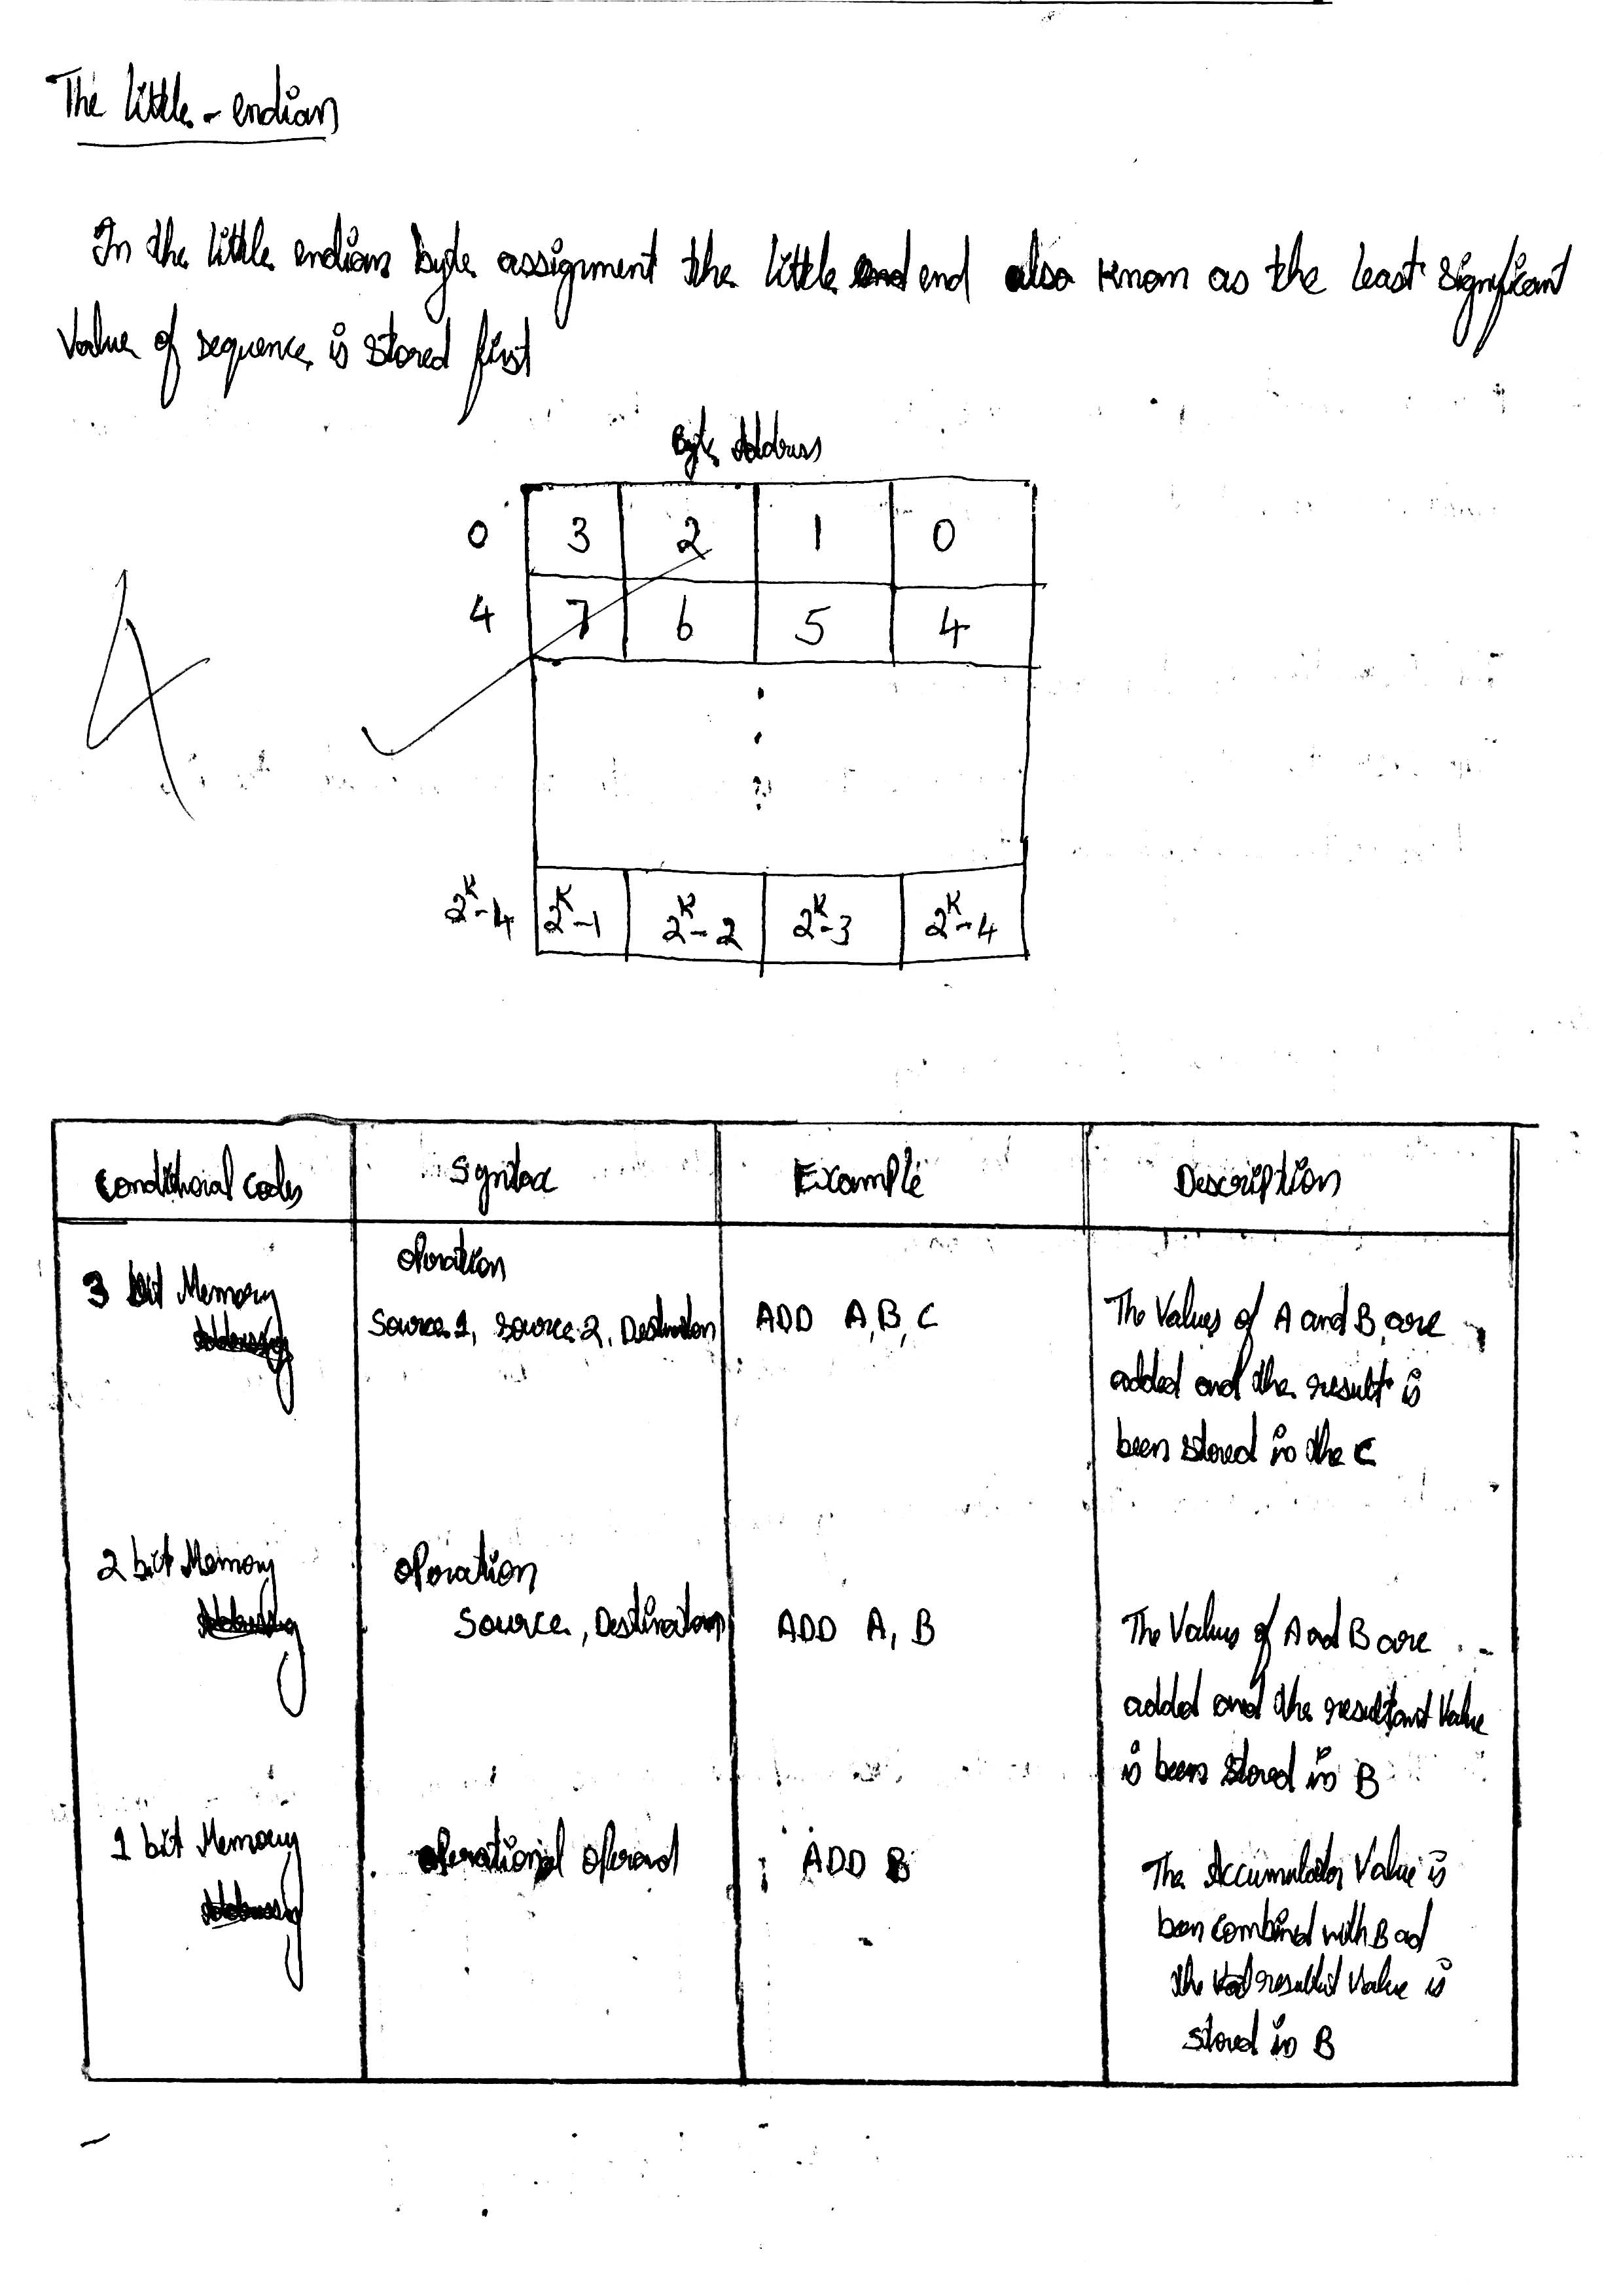 The little - endian
In the little endian byte assignment the little end end also known as the least significant
Value of sequence is stored first
Byte Address
0 3 2 1 0
4 7 6 5 4
4
2^K-4 2^K-1 2^K-2 2^K-3 2^K-4
Conditional codes Syntax Example Description
3 bit Memory
Addressing
Operation
Source 1, source 2, Destination
ADD A, B, C
The Values of A and B are
added and the result is
been stored in the C
2 bit Memory
Addressing
Operation
Source, Destination
ADD A, B
The Values of A and B are
added and the resultant Value
is been stored in B
1 bit Memory
Addressing
Operational Operand
ADD B
The Accumulator Value is
been combined with B ad
the resultant Value is
stored in B